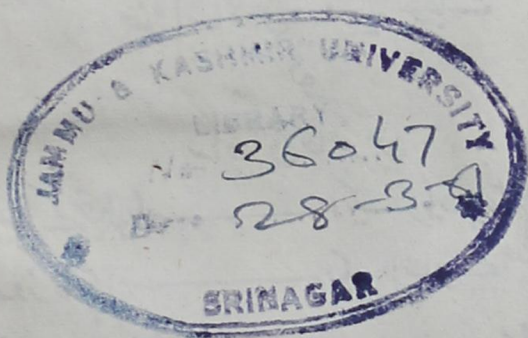 JAMMU & KASHMIR UNIVERSITY
LIBRARY
No. 36047
Date 28-3-61
SRINAGAR